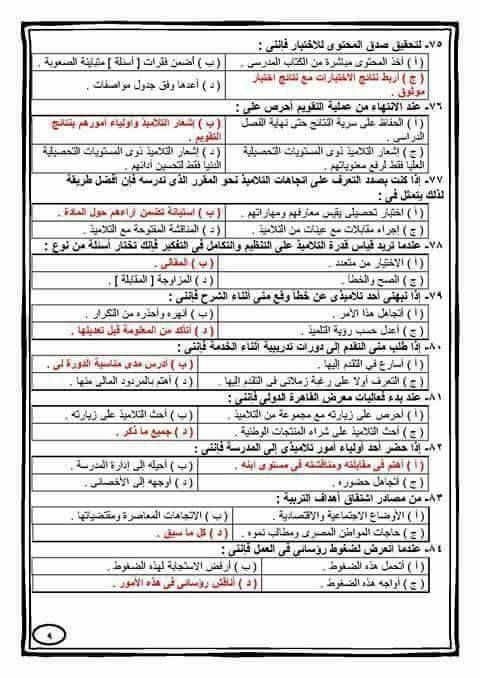 ٧٥- لتحقيق صدق المحتوى للاختبار فإننى :
( أ ) آخذ المحتوى مباشرة من الكتاب المدرسى .
( ب ) أضمن فقرات [ أسئلة ] متباينة الصعوبة .
( ج ) أربط نتائج الاختبارات مع نتائج اختبار موثوق .
( د ) أعدها وفق جدول مواصفات .
٧٦- عند الانتهاء من عملية التقويم أحرص على :
( أ ) الحفاظ على سرية النتائج حتى نهاية الفصل الدراسى .
( ب ) إشعار التلاميذ وأولياء أمورهم بنتائج التقويم .
( ج ) إشعار التلاميذ ذوى المستويات التحصيلية العليا فقط لرفع معنوياتهم .
( د ) إشعار التلاميذ ذوى المستويات التحصيلية الدنيا فقط لتحسين أدائهم .
٧٧- إذا كنت بصدد التعرف على اتجاهات التلاميذ نحو المقرر الذى تدرسه فإن أفضل طريقة
لذلك يتمثل فى :
( أ ) اختبار تحصيلى يقيس معارفهم ومهاراتهم .
( ب ) استبانة تتضمن آراءهم حول المادة .
( ج ) إجراء مقابلات مع عينات من التلاميذ .
( د ) المناقشة المفتوحة مع التلاميذ .
٧٨- عندما تريد قياس قدرة التلاميذ على التنظيم والتكامل فى التفكير فإنك تختار أسئلة من نوع :
( أ ) الاختيار من متعدد .
( ب ) المقالى .
( ج ) الصح والخطأ .
( د ) المزاوجة [ المقابلة ] .
٧٩- إذا نبهنى أحد تلاميذى عن خطأ وقع منى أثناء الشرح فإننى :
( أ ) أتجاهل هذا الأمر .
( ب ) أنهره وأحذره من التكرار .
( ج ) أعدل حسب رؤية التلميذ .
( د ) أتأكد من المعلومة قبل تعديلها .
٨٠- إذا طلب منى التقدم إلى دورات تدريبية أثناء الخدمة فإننى :
( أ ) أسارع فى التقدم إليها .
( ب ) أدرس مدى مناسبة الدورة لى .
( ج ) التعرف أولا على رغبة زملائى فى التقدم إليها .
( د ) أهتم بالمردود المالى منها .
٨١- عند بدء فعاليات معرض القاهرة الدولي فإننى :
( أ ) أحرص على زيارته مع مجموعة من التلاميذ .
( ب ) أحث التلاميذ على زيارته .
( ج ) أحث التلاميذ على شراء المنتجات الوطنية .
( د ) جميع ما ذكر .
٨٢- إذا حضر أحد أولياء أمور تلاميذى إلى المدرسة فإننى :
( أ ) أهتم فى مقابلته ومناقشته فى مستوى ابنه .
( ب ) أحيله إلى إدارة المدرسة .
( ج ) أتجاهل حضوره .
( د ) أوجهه إلى الأخصائى .
٨٣- من مصادر اشتقاق أهداف التربية :
( أ ) الأوضاع الاجتماعية والاقتصادية .
( ب ) الاتجاهات المعاصرة ومقتضياتها .
( ج ) حاجات المواطن المصرى ومطالب نموه .
( د ) كل ما سبق .
٨٤- عندما أتعرض لضغوط رؤسائى فى العمل فإننى :
( أ ) أتحمل هذه الضغوط .
( ب ) أرفض الاستجابة لهذه الضغوط .
( ج ) أواجه هذه الضغوط .
( د ) أناقش رؤسائى فى هذه الأمور .
٩